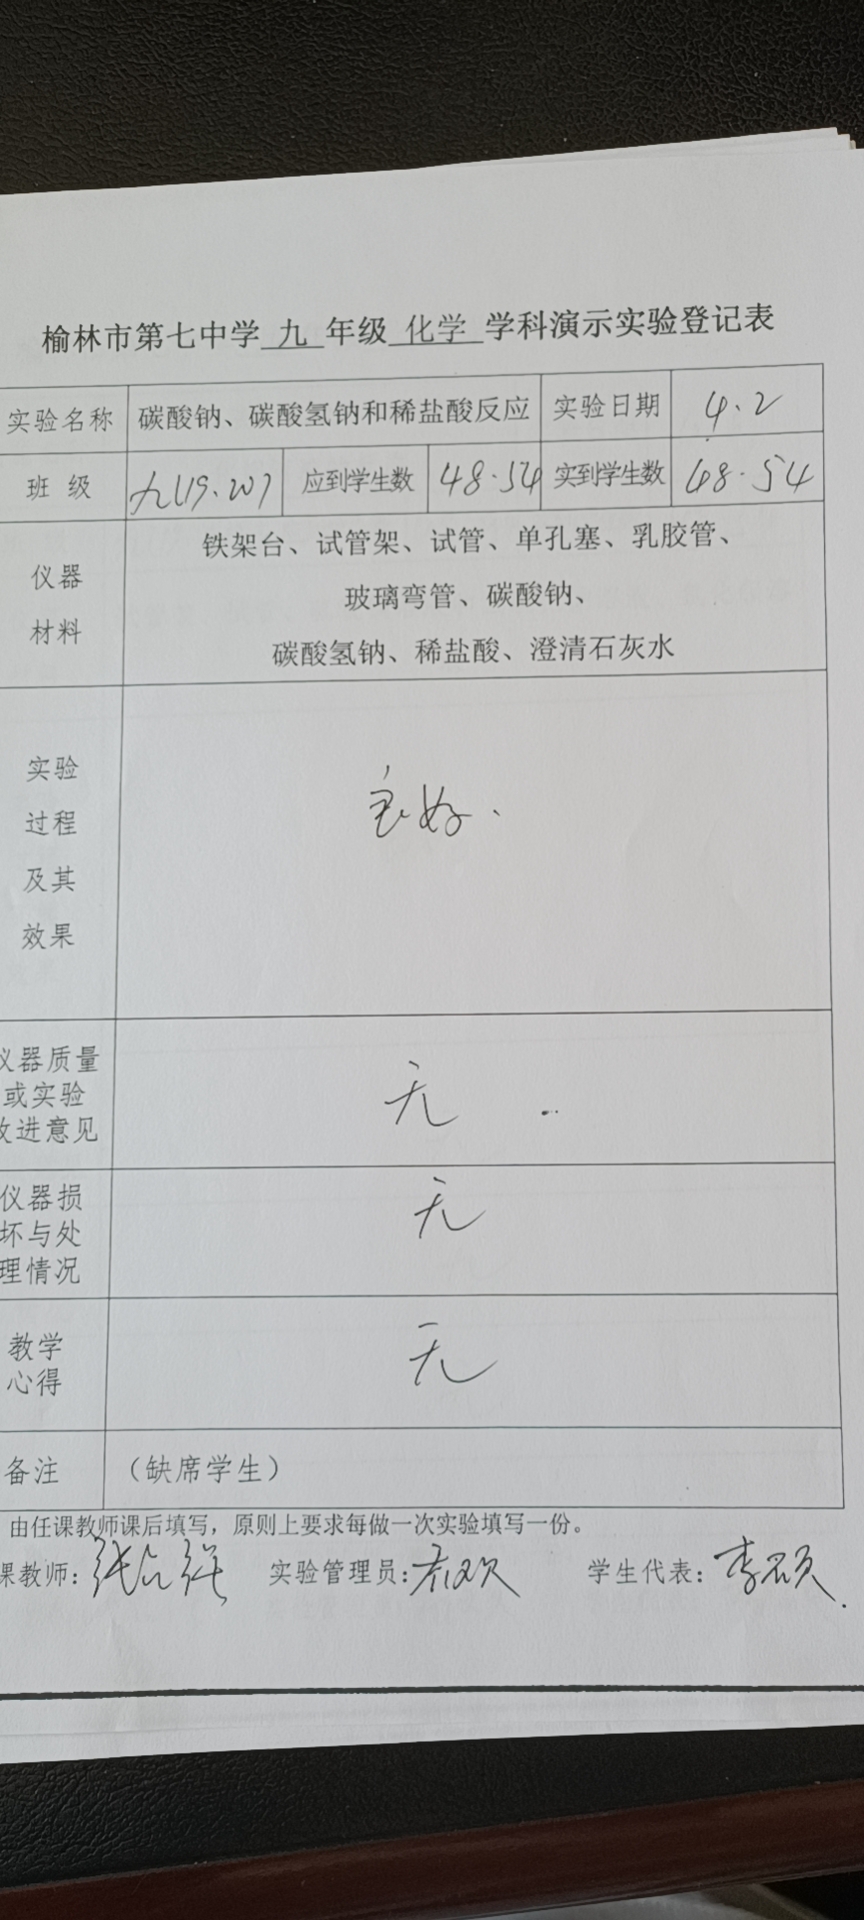 榆林市第七中学 九 年级 化学 学科演示实验登记表
实验名称 碳酸钠、碳酸氢钠和稀盐酸反应 实验日期 4.2
班 级 九(19.20) 应到学生数 48.54 实到学生数 48.54
仪器
材料
铁架台、试管架、试管、单孔塞、乳胶管、
玻璃弯管、碳酸钠、
碳酸氢钠、稀盐酸、澄清石灰水
实验
过程
及其
效果
良好.
仪器质量
或实验
改进意见
无
仪器损
坏与处
理情况
无
教学
心得
无
备注 （缺席学生）
由任课教师课后填写，原则上要求每做一次实验填写一份。
课教师: 实验管理员: 学生代表: 李硕